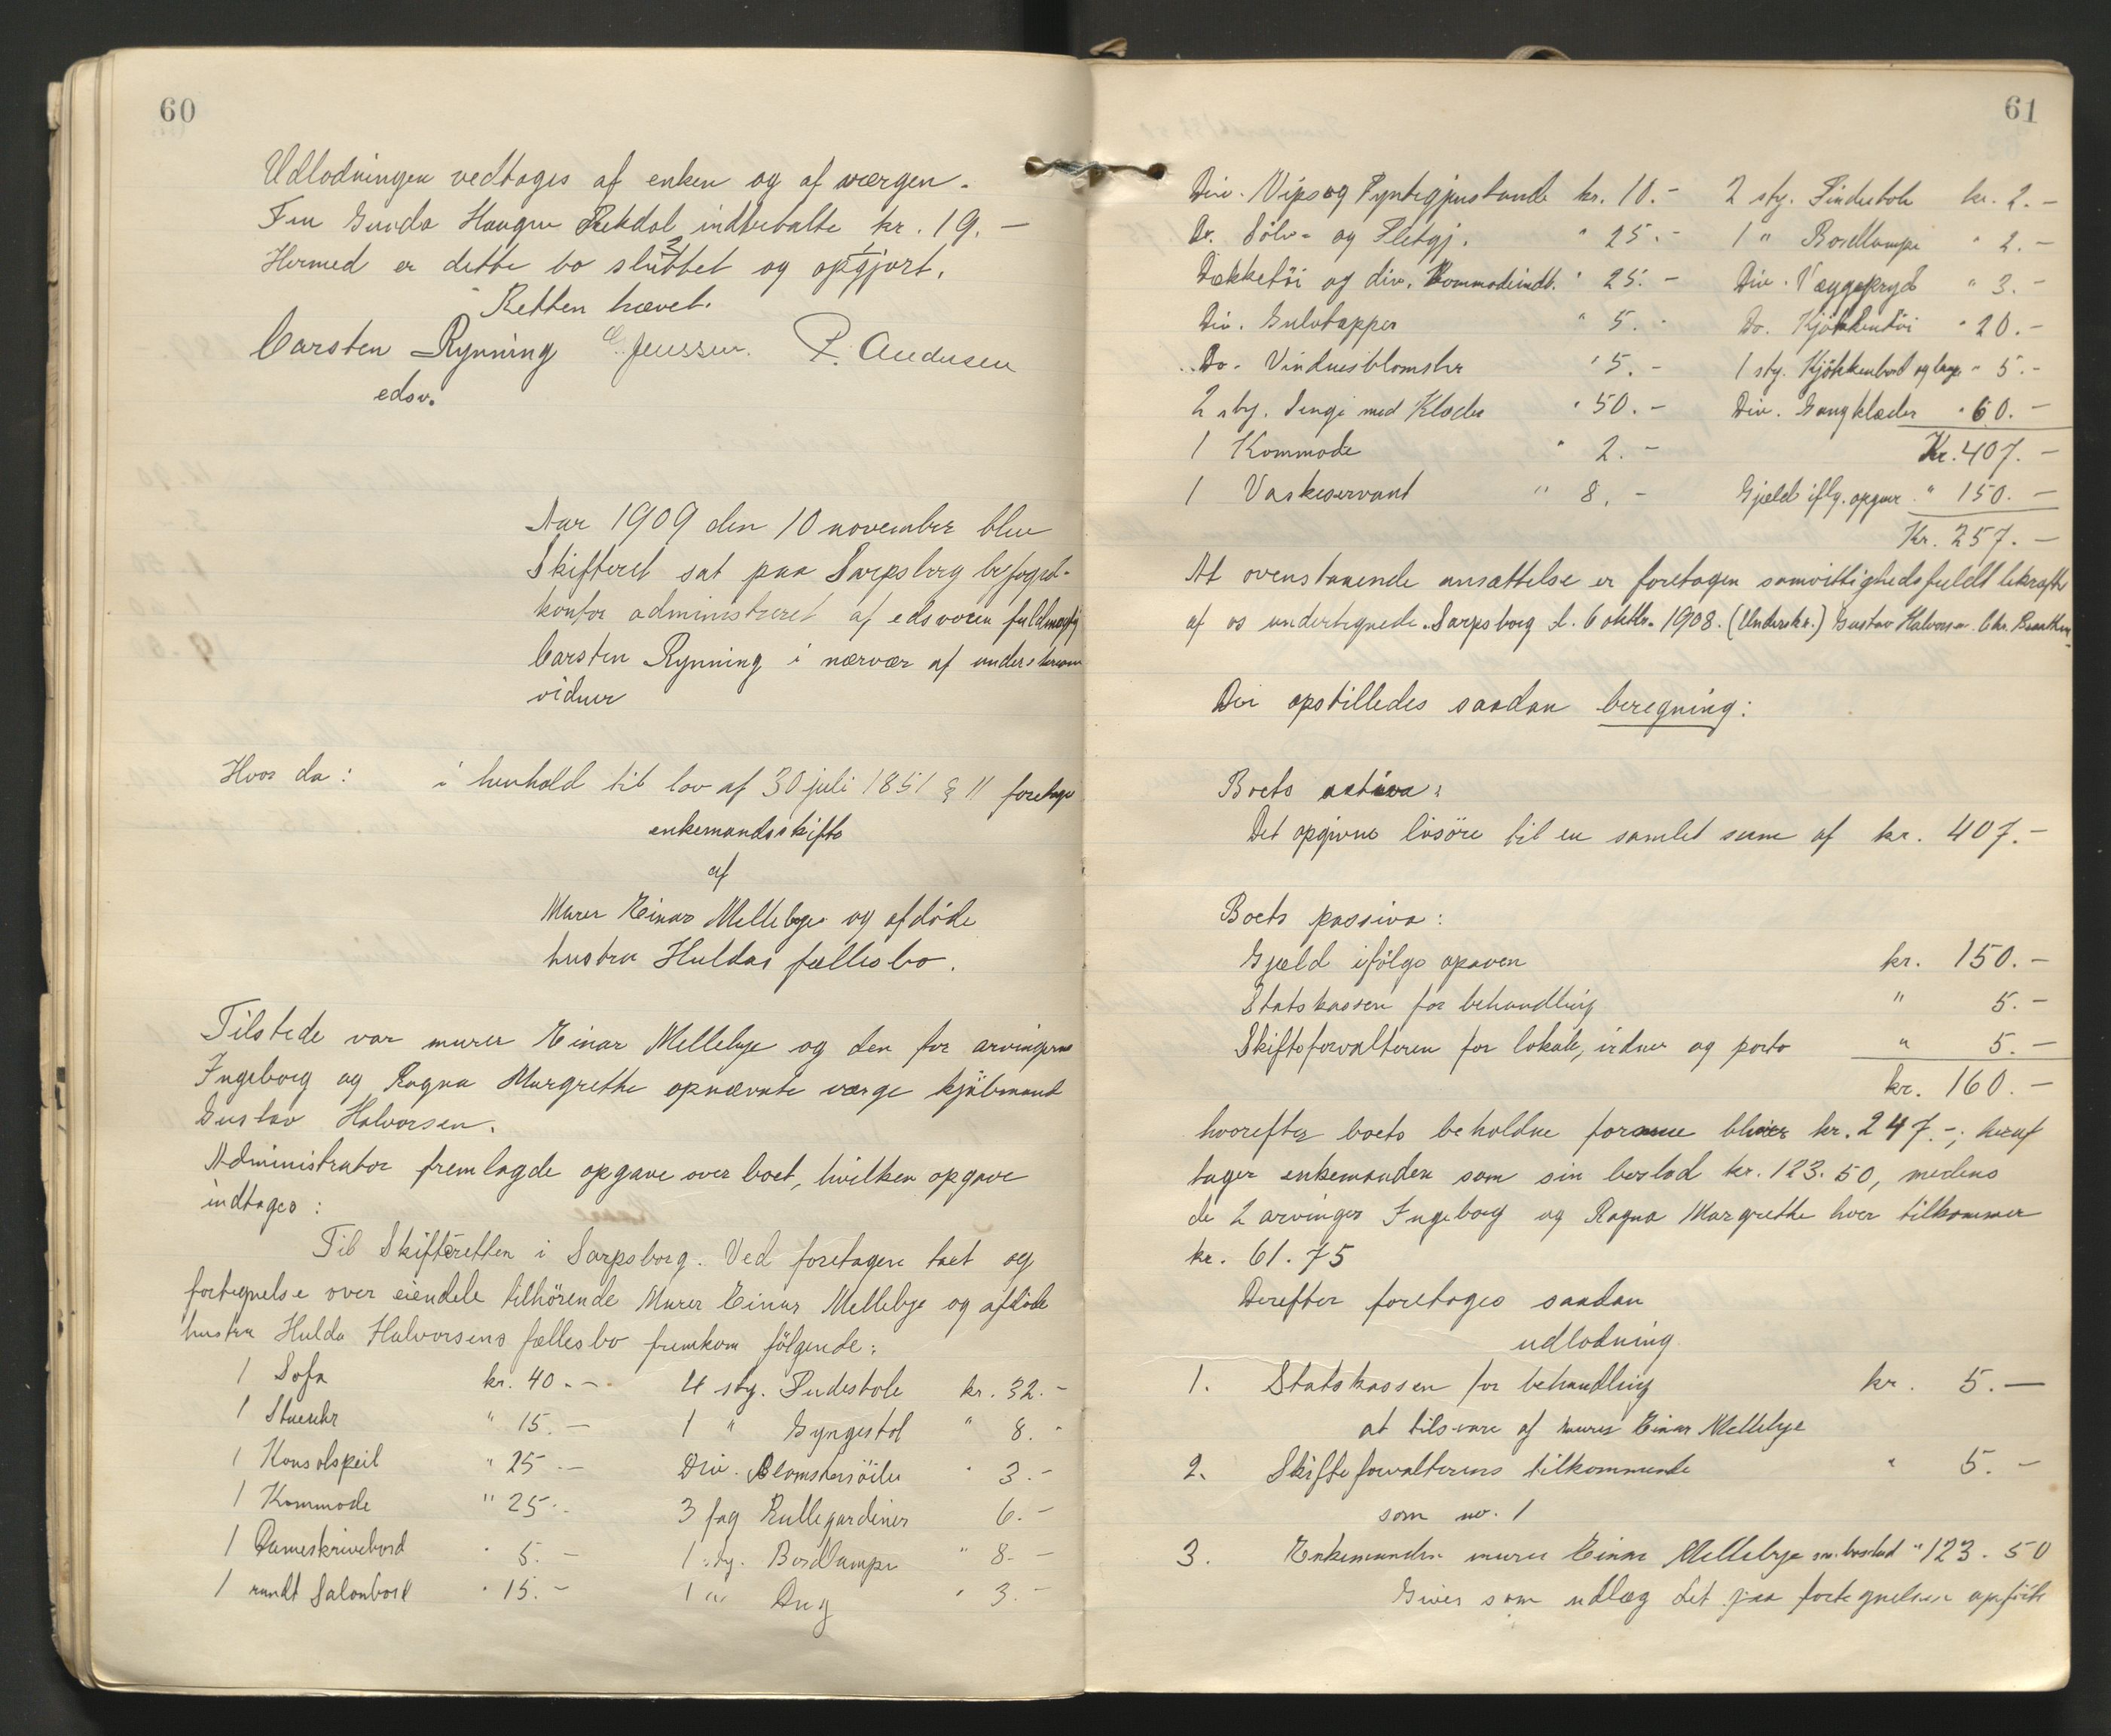 60
Udlodningen vedtages af enken og af værgen.
Fru Gunda Haugen Rekdal indbetalte kr. 19. –
Hermed er dette bo sluttet og opgjort.
Retten hævet.
Carsten Rynning C. Jenssen. P. Andersen
edsv.
Aar 1909 den 10 november blev
Skifteret sat paa Sarpsborg byfoged-
kontor administreret af edsvoren fuldmægtig
Carsten Rynning i nærvær af underskrevne
vidner
Hvor da: i henhold til lov af 30 juli 1851 § 11 foretages
enkemandsskifte
af
Murer Einar Mellebye og afdöde
hustru Huldas fællesbo.
Tilstede var murer Einar Mellebye og den for arvingerne
Ingeborg og Ragna Margrethe opnævnte værge kjöbmand
Gustav Halvorsen.
Administrator fremlagde opgave over boet, hvilken opgave
indtages:
Til Skifteretten i Sarpsborg. Ved foretagen taxt og
fortegnelse over eiendele tilhörende Murer Einar Mellebye og afdöde
hustru Hulda Halvorsens fællesbo fremkom fölgende:
1 Sofa kr. 40. – 4 sty. Pudestole kr. 32. –
1 Stueuhr " 15. – 1 " Gyngestol " 8. -
1 Konsolspeil " 25 – Div. Blomstersöiler " 3. –
1 Kommode " 25. 3 fag Rullegardiner 6. –
1 Dameskrivebord " 5. – 1 sty. Bordlampe " 8. –
1 rundt Salonbord " 15. – 1 " Dug " 3. –
61
Div. Nips og Pyntegjenstande kr. 10. – 2 sty. Pindestole kr. 2. –
Do. Sölv- og Pletgj. " 25. – 1 " Bordlampe " 2. –
Dækketöi og div. Kommodeindh. " 25. – Div. Vægpryd " 3. –
Div. Gulvtepper " 5. - Do. Kjökkentöi " 20. –
Do. Vinduesblomster " 5. – 1 sty. Kjökkenbord og " 5. –
2 sty. Senge med Klæder " 50. – Div. Gangklæder " 60. –
1 Kommode " 2. – Kr. 407. –
1 Vaskeservant " 8. – Gjæld iflg. opgave " 150. –
Kr. 257. –
At ovenstaaende ansættelse er foretagen samvittighedsfuldt bekræftes
af os undertegnede. Sarpsborg d. 6 oktbr. 1908. (Underskr.) Gustav Halvorsen. Chr.
Der opstilledes saadan beregning:
Boets activa:
Det opgivne lösöre til en samlet sum af kr. 407. –
Boets passiva:
Gjæld ifölge opgaven kr. 150. –
Statskassen for behandling " 5. –
Skifteforvalteren for lokale, vidner og porto " 5. –
kr. 160. –
hvorefter boets beholdne formue bliver kr. 247. –; heraf
tager enkemanden som sin boslod kr. 123.50, medens
de 2 arvinger Ingeborg og Ragna Margrethe hver tilkommer
kr. 61.75
Derefter foretages saadan
udlodning
1. Statskassen for behandling kr. 5. –
at tilsvare af murer Einar Mellebye
2. Skifteforvalterens tilkommende " 5. –
som no. 1
3. Enkemanden murer Einar Mellebye sin boslod " 123.50
Gives som udlæg det paa fortegnelsen opförte